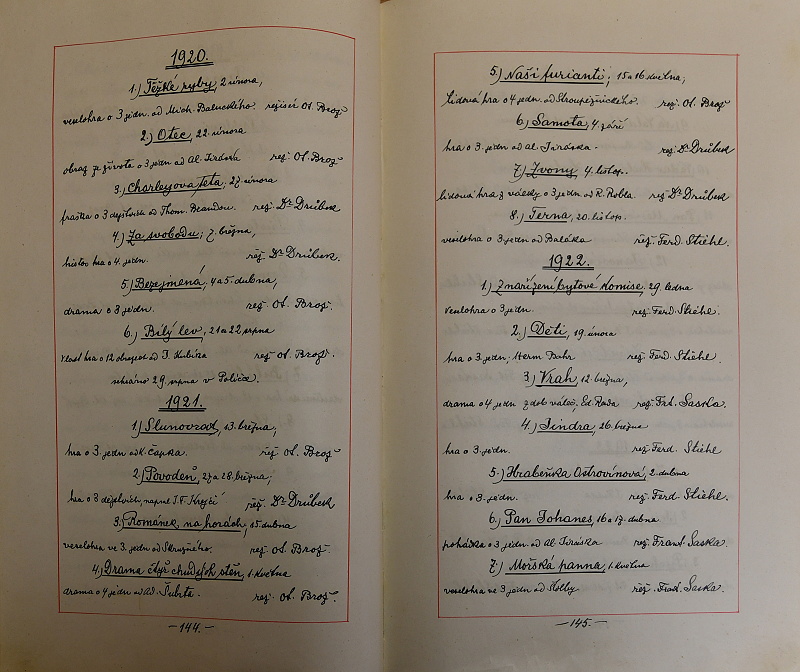 1920.
1.) Těžké ryby, 2 února,
veselohra o 3 jedn. od Mich. Baluckého. režiseur Ot. Brož
2.) Otec, 22. února
obraz ze života o 3 jedn od Al. Jiráska rež. Ot. Brož
3.) Charleyova teta, 27. února
fraška o 3 dějstvích od Thom. Brandona. rež. Dr Drůbek
4.) Za svobodu; 7. března,
histor. hra o 4 jedn. rež. Dr Drůbek.
5.) Bezejmenná, 4 a 5. dubna,
drama o 3 jedn. rež. Ot. Brož.
6.) Bílý lev, 21 a 22 srpna
vlast hra o 12 obrazech od J. Kubína rež. Ot. Brož.
sehráno 29. srpna v Poličce.
1921.
1.) Slunovrat, 13. března,
hra o 3. jedn od K. Čapka. rež. Ot. Brož
2.) Povodeň, 27 a 28. března;
hra o 3 dějstvích, napsal J. F. Krejčí rež. Dr Drůbek
3.) Románek na horách, 15 dubna
veselohra ve 3. jedn od Skružného. rež. Ot. Brož.
4.) Drama čtyř chudých stěn, 1. května
drama o 4 jedn od Ad. Šubrta. rež. Ot. Brož.
— 144. —
5.) Naši furianti; 15 a 16 května;
lidová hra o 4 jedn. od Stroupežnického. rež. Ot. Brož
6.) Samota, 4. září
hra o 3. jedn od Al. Jiráska. rež. Dr Drůbek
7.) Zvony, 4. listop.
lidová hra z války o 3 jedn. od R. Robla. rež. Dr Drůbek
8.) Terna, 20. listop.
veselohra o 3 jedn od Baláka rež. Ferd. Stiehl.
1922.
1.) Znařízení bytové komise, 29. ledna
veselohra o 3 jedn. rež. Ferd. Stiehl.
2.) Děti, 19. února
hra o 3. jedn. Herm Bahr rež. Ferd. Stiehl.
3.) Vrah, 12. března,
drama o 4 jedn z dob váleč, Ed. Rada rež. Frt. Saska.
4.) Jindra, 26. března
hra o 3. jedn. rež. Ferd. Stiehl
5.) Hraběnka Ostrovínová, 2. dubna
hra o 3. jedn. rež. Ferd. Stiehl.
6.) Pan Johanes, 16 a 17. dubna
pohádka o 3. jedn od Al. Jiráska rež. Frant. Saska.
7.) Mořská panna, 1. května
veselohra ve 3 jedn od Kolby rež. Frant. Saska.
— 145. —